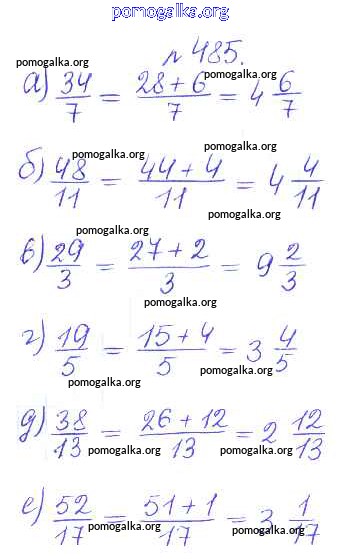 pomogalka.org
№ 485.
pomogalka.org pomogalka.org
а) 34/7 = 28+6/7 = 4 6/7
pomogalka.org
pomogalka.org
б) 48/11 = 44+4/11 = 4 4/11
pomogalka.org
pomogalka.org
в) 29/3 = 27+2/3 = 9 2/3
pomogalka.org
г) 19/5 = 15+4/5 = 3 4/5
pomogalka.org pomogalka.org
д) 38/13 = 26+12/13 = 2 12/13
pomogalka.org
е) 52/17 = 51+1/17 = 3 1/17
pomogalka.org pomogalka.org